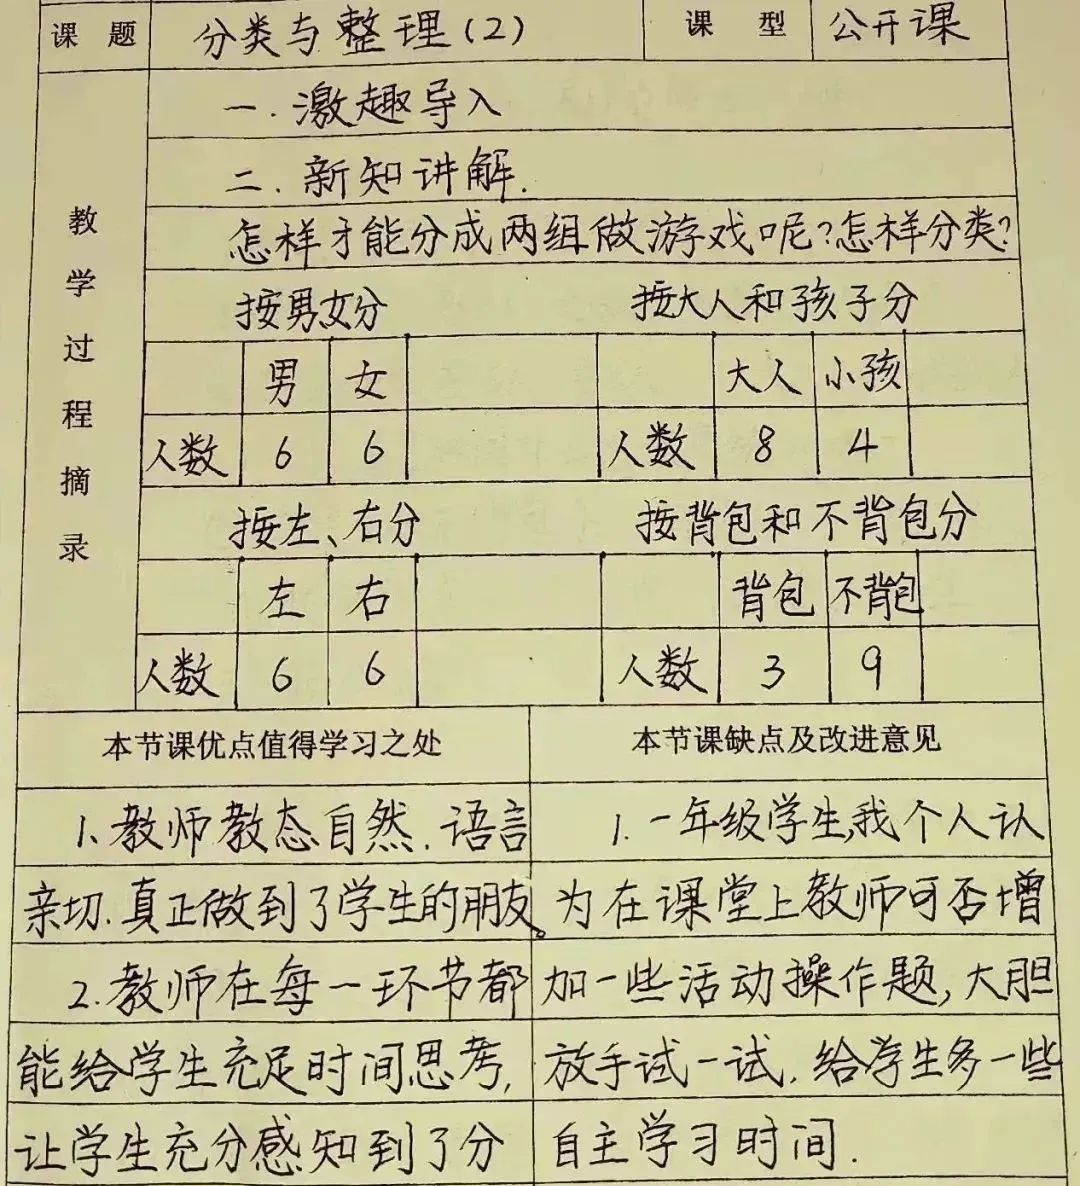 课题 分类与整理(2) 课型 公开课
教学过程摘录
一.激趣导入
二.新知讲解.
怎样才能分成两组做游戏呢?怎样分类?
按男女分 按大人和孩子分
男 女 大人 小孩
人数 6 6 人数 8 4
按左、右分 按背包和不背包分
左 右 背包 不背包
人数 6 6 人数 3 9
本节课优点值得学习之处
1、教师教态自然.语言
亲切.真正做到了学生的朋友。
2.教师在每一环节都
能给学生充足时间思考,
让学生充分感知到了分
本节课缺点及改进意见
1.一年级学生,我个人认
为在课堂上教师可否增
加一些活动操作题,大胆
放手试一试.给学生多一些
自主学习时间.